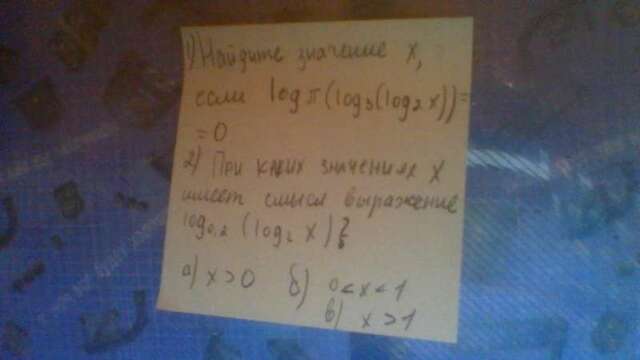 1) Найдите значение x,
если log π (log₃(log₂ x))=
= 0
2) При каких значениях x
имеет смысл выражение
log₀,₂ (log₂ x)?
а) x > 0 б) 0 < x < 1
в) x > 1